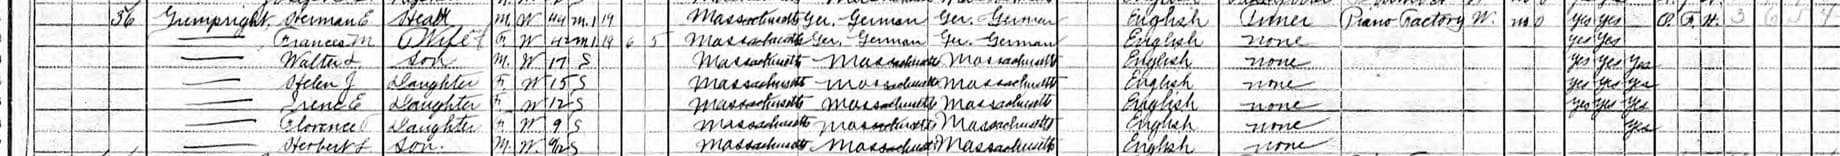 56 Gumpright, Herman E Head M. W 44 M.1 19 Massachusetts Ger. German Ger. German English Tuner Piano Factory W. no 0 yes yes O. F. H. 3 6 5 4
—— Frances M Wife F W 42 M1 19 6 5 Massachusetts Ger. German Ger. German English none yes yes
—— Walter L Son M. W 17 S Massachusetts Massachusetts Massachusetts English none yes yes yes
—— Helen J Daughter F. W 15 S Massachusetts Massachusetts Massachusetts English none yes yes yes
—— Irene E Daughter F W 12 S Massachusetts Massachusetts Massachusetts English none yes yes yes
—— Florence Daughter F W 9 S Massachusetts Massachusetts Massachusetts English none yes
—— Herbert L Son. M. W. 9/12 S Massachusetts Massachusetts Massachusetts English none